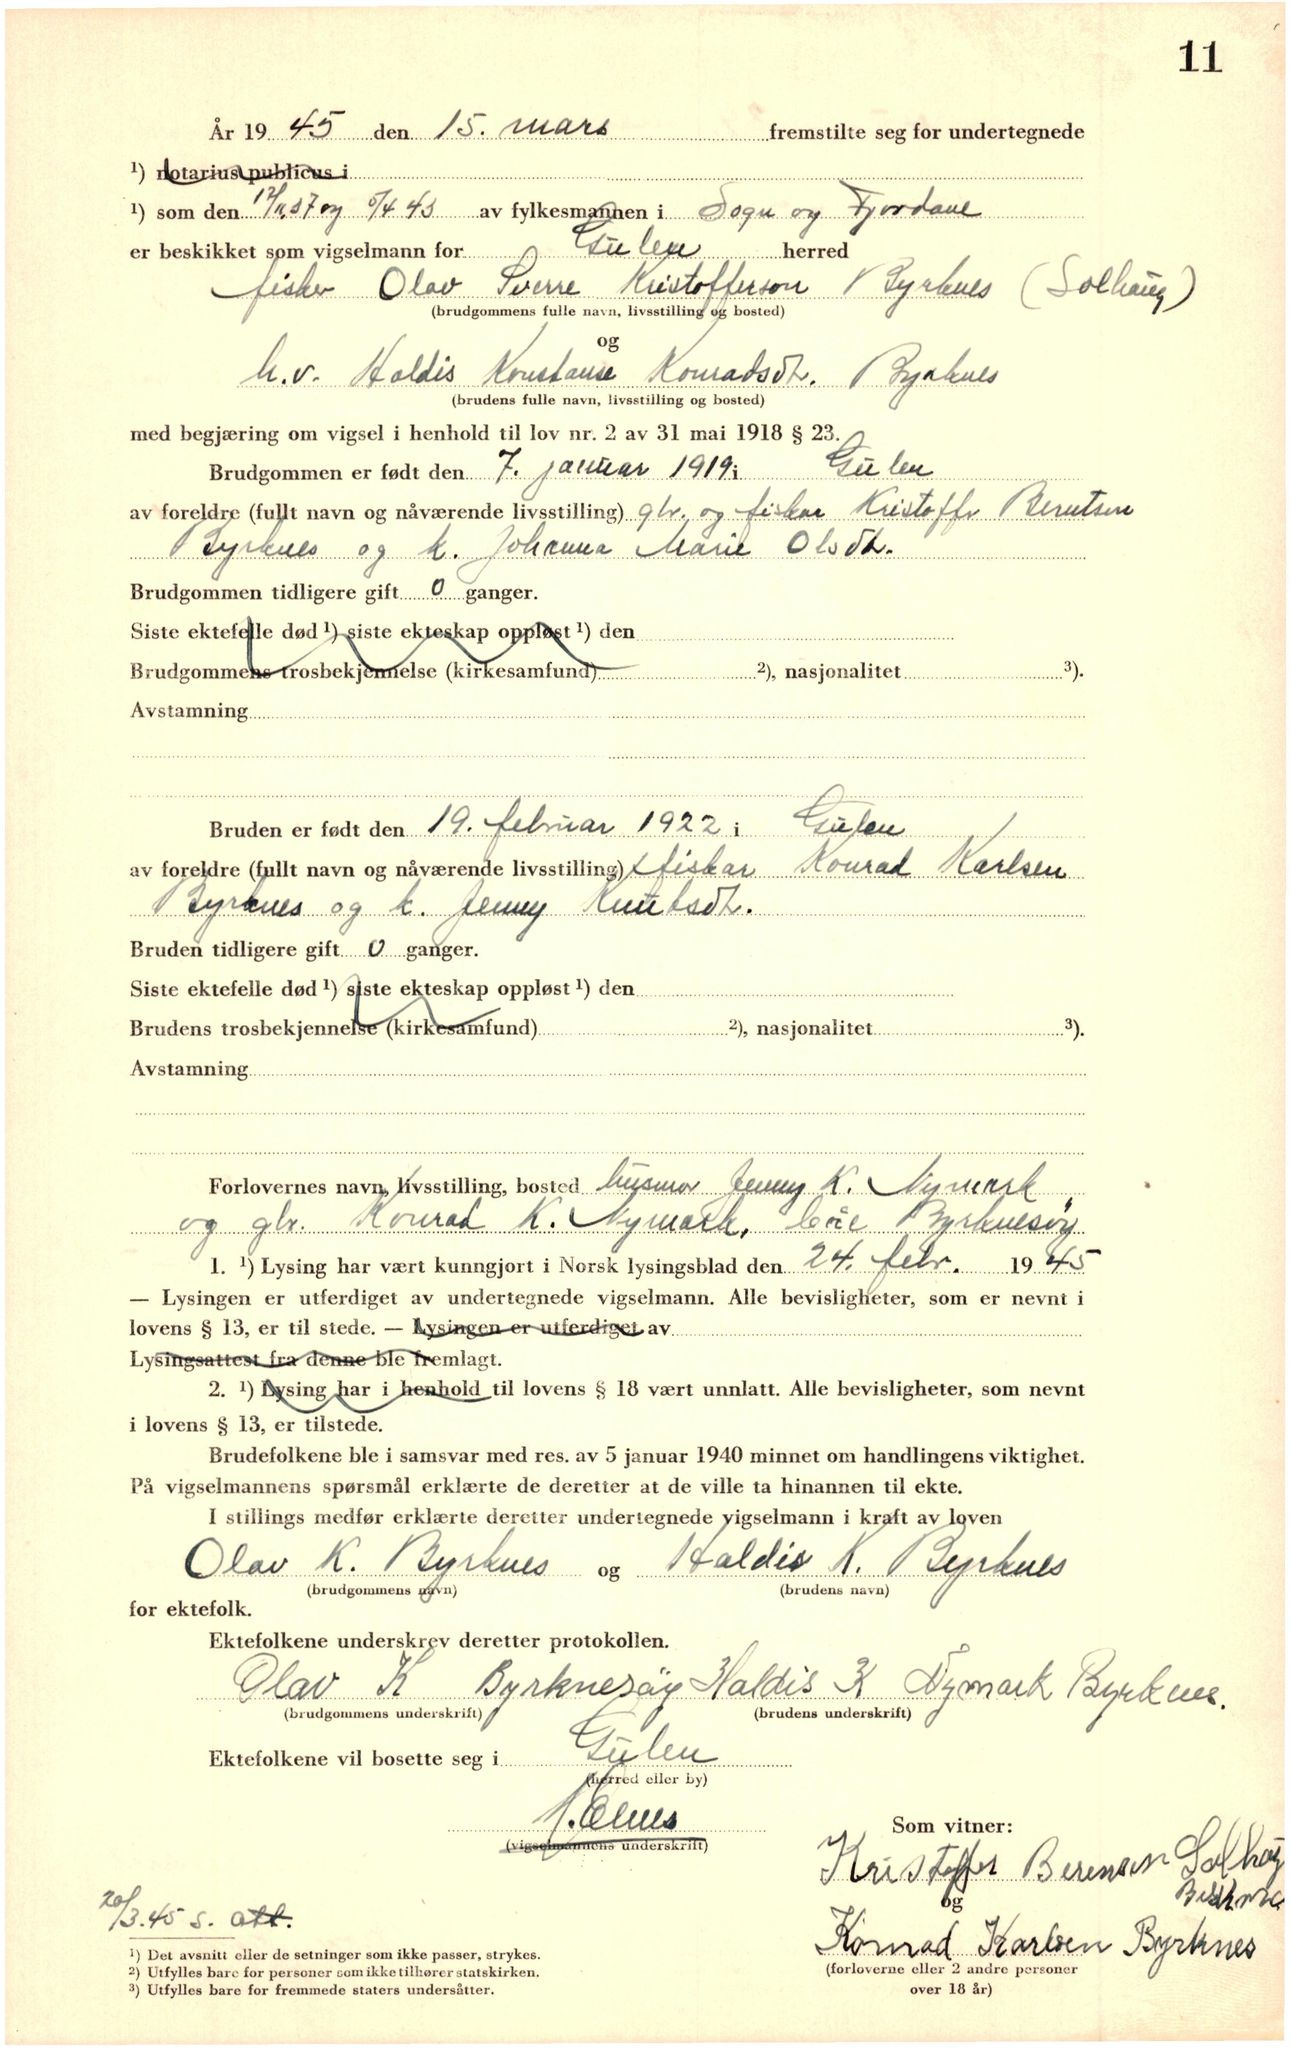 11
År 19 45 den 15. mars fremstilte seg for undertegnede
¹) notarius publicus i
¹) som den 12/11 37 og 5/4 43 av fylkesmannen i Sogn og Fjordane
er beskikket som vigselmann for Gulen herred
fisker Olav Sverre Kristofferson Byrknes (Solhaug)
(brudgommens fulle navn, livsstilling og bosted)
og
h.v. Haldis Konstanse Konradsdt. Byrknes
(brudens fulle navn, livsstilling og bosted)
med begjæring om vigsel i henhold til lov nr. 2 av 31 mai 1918 § 23.
Brudgommen er født den 7. januar 1919 i Gulen
av foreldre (fullt navn og nåværende livsstilling) gbr. og fiskar Kristoffr Berntsen
Byrknes og k. Johanna Marie Olsdt.
Brudgommen tidligere gift 0 ganger.
Siste ektefelle død ¹) siste ekteskap oppløst ¹) den
Brudgommens trosbekjennelse (kirkesamfund) ²), nasjonalitet ³).
Avstamning
Bruden er født den 19. februar 1922 i Gulen
av foreldre (fullt navn og nåværende livsstilling) fiskar Konrad Karlsen
Byrknes og k. Jenny Knutsdt.
Bruden tidligere gift 0 ganger.
Siste ektefelle død ¹) siste ekteskap oppløst ¹) den
Brudens trosbekjennelse (kirkesamfund) ²), nasjonalitet ³).
Avstamning
Forlovernes navn, livsstilling, bosted husmor Jenny K. Nymark
og gbr. Konrad K. Nymark, båe Byrknesøy
1. ¹) Lysing har vært kunngjort i Norsk lysingsblad den 24. febr. 19 45
— Lysingen er utferdiget av undertegnede vigselmann. Alle bevisligheter, som er nevnt i
lovens § 13, er til stede. — Lysingen er utferdiget av
Lysingsattest fra denne ble fremlagt.
2. ¹) Lysing har i henhold til lovens § 18 vært unnlatt. Alle bevisligheter, som nevnt
i lovens § 13, er tilstede.
Brudefolkene ble i samsvar med res. av 5 januar 1940 minnet om handlingens viktighet.
På vigselmannens spørsmål erklærte de deretter at de ville ta hinannen til ekte.
I stillings medfør erklærte deretter undertegnede vigselmann i kraft av loven
Olav K. Byrknes og Haldis K. Byrknes
(brudgommens navn) (brudens navn)
for ektefolk.
Ektefolkene underskrev deretter protokollen.
Olav K Byrknesøy Haldis K Nymark Byrknes.
(brudgommens underskrift) (brudens underskrift)
Ektefolkene vil bosette seg i Gulen
(herred eller by)
(vigselmannens underskrift)
Som vitner:
Kristoffer Berensen Solhøy
og
Konrad Karlsen Byrknes
(forloverne eller 2 andre personer
over 18 år)
20/3.45 s. att.
¹) Det avsnitt eller de setninger som ikke passer, strykes.
²) Utfylles bare for personer som ikke tilhører statskirken.
³) Utfylles bare for fremmede staters undersåtter.